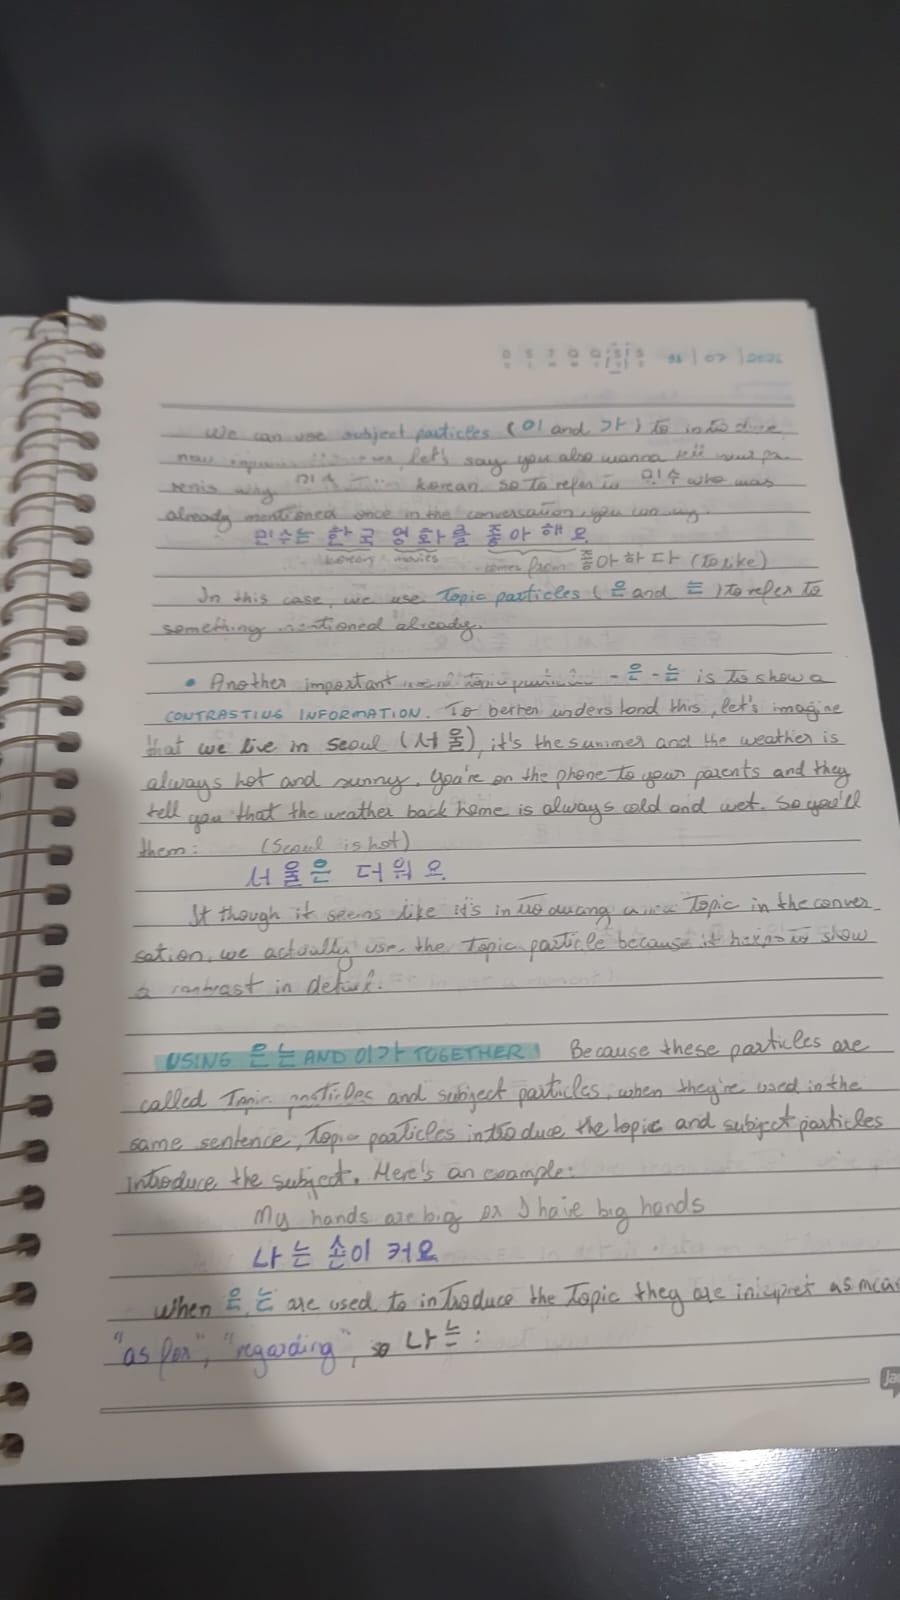 We can use subject particles (이 and 가) to introduce
let's say you also wanna tell your pa-
rents why 민수 korean. so to refer to 민수 who was
already mentioned once in the conversation, you can say.
민수는 한국 영화를 좋아해요
korean movies comes from 좋아하다 (to like)
In this case, we use Topic particles (은 and 는) to refer to
something mentioned already.
• Another important -은 -는 is to show a
CONTRASTING INFORMATION. To better understand this, let's imagine
that we live in Seoul (서울), it's the summer and the weather is
always hot and sunny. You're on the phone to your parents and they
tell you that the weather back home is always cold and wet. So you'll
them: (Seoul is hot)
서울은 더워요
It though it seems like it's introducing a new Topic in the conver-
sation, we actually use the Topic particle because it helps to show
a contrast in detail.
USING 은 는 AND 이 가 TOGETHER Because these particles are
called Topic particles and subject particles, when they're used in the
same sentence, Topic particles introduce the topic and subject particles
introduce the subject. Here's an example:
My hands are big or I have big hands
나는 손이 커요
When 은, 는 are used to introduce the Topic they are as
"as for", "regarding", so 나는: